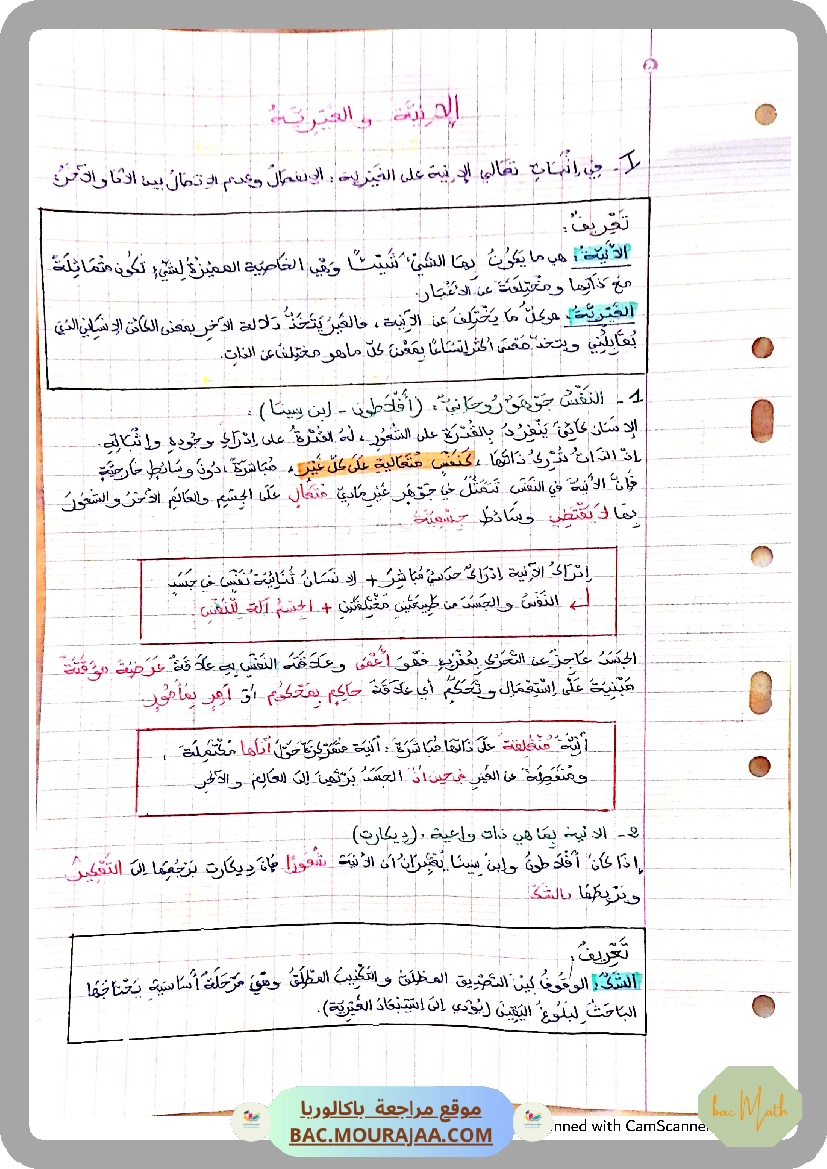 الإنيّة و الغيريّة
I- في إثبات تعالي الإنية على الغيرية: الانفصال وعدم الاتصال بين الأنا والآخر:
تعريف:
الأنّية: هي ما يكون بها الشيء شيئا وهي الخاصية المميزة لشيء تكون متماثلة
مع ذاتها ومختلفة عن الأغيار.
الغيريّة: هو كلّ ما يختلف عن الآنية، فالغير يتّخذ دلالة الآخر بمعنى الكائن الإنساني الذي
يقابلني ويتخذ معنى أكثر اتساعا بمعنى كلّ ما هو مختلف عن الذات.
1- النفس جوهر روحانيّ: (أفلاطون - ابن سينا):
الإنسان كائن ينفرد بالقدرة على الشعور، له القدرة على إدراك وجوده وإثباته.
إذ الذات تدرك ذاتها، كنفس متعالية على كلّ غير، مباشرة، دون وسائط خارجية
فإنّ الأنية في النفس تتمثّل في جوهر غير ماديّ متعال على الجسم والعالم الآخر والشعور
بها لا يقتضي وسائط جسميّة
إدراك الآنية إدراك حدسي مباشر + الإنسان ثنائية نفس في جسد
النفس والجسد من طبيعتين مختلفتين + الجسم آلة للنفس
الجسد عاجز عن التحرّك بمفرده فهو أعمى وعلاقته النفس به علاقة عرضية مؤقتة
مبنية على استعمال وتحكم أي علاقة حاكم بمحكوم أو آمر بمأمور.
أنيّة منغلقة على ذاتها مباشرة: آنية متمركزة حول أناها مكتملة،
ومنفصلة عن الغير في حين أنّ الجسد يرتهن إلى العالم والآخر
2- الانية بما هي ذات واعية: (ديكارت)
إذا كان أفلاطون وابن سينا يعتبران أن الأنية شعورا فإن ديكارت يرجعها إلى التفكير
ويربطها بالشك
تعريف:
الشك: الوقوف بين التصديق المطلق والتكذيب المطلق وهي مرحلة أساسية يحتاجها
الباحث لبلوغ اليقين (يؤدي إلى استبعاد الغيرية).
موقع مراجعة باكالوريا
BAC.MOURAJAA.COM
nned with CamScanner
bac Math